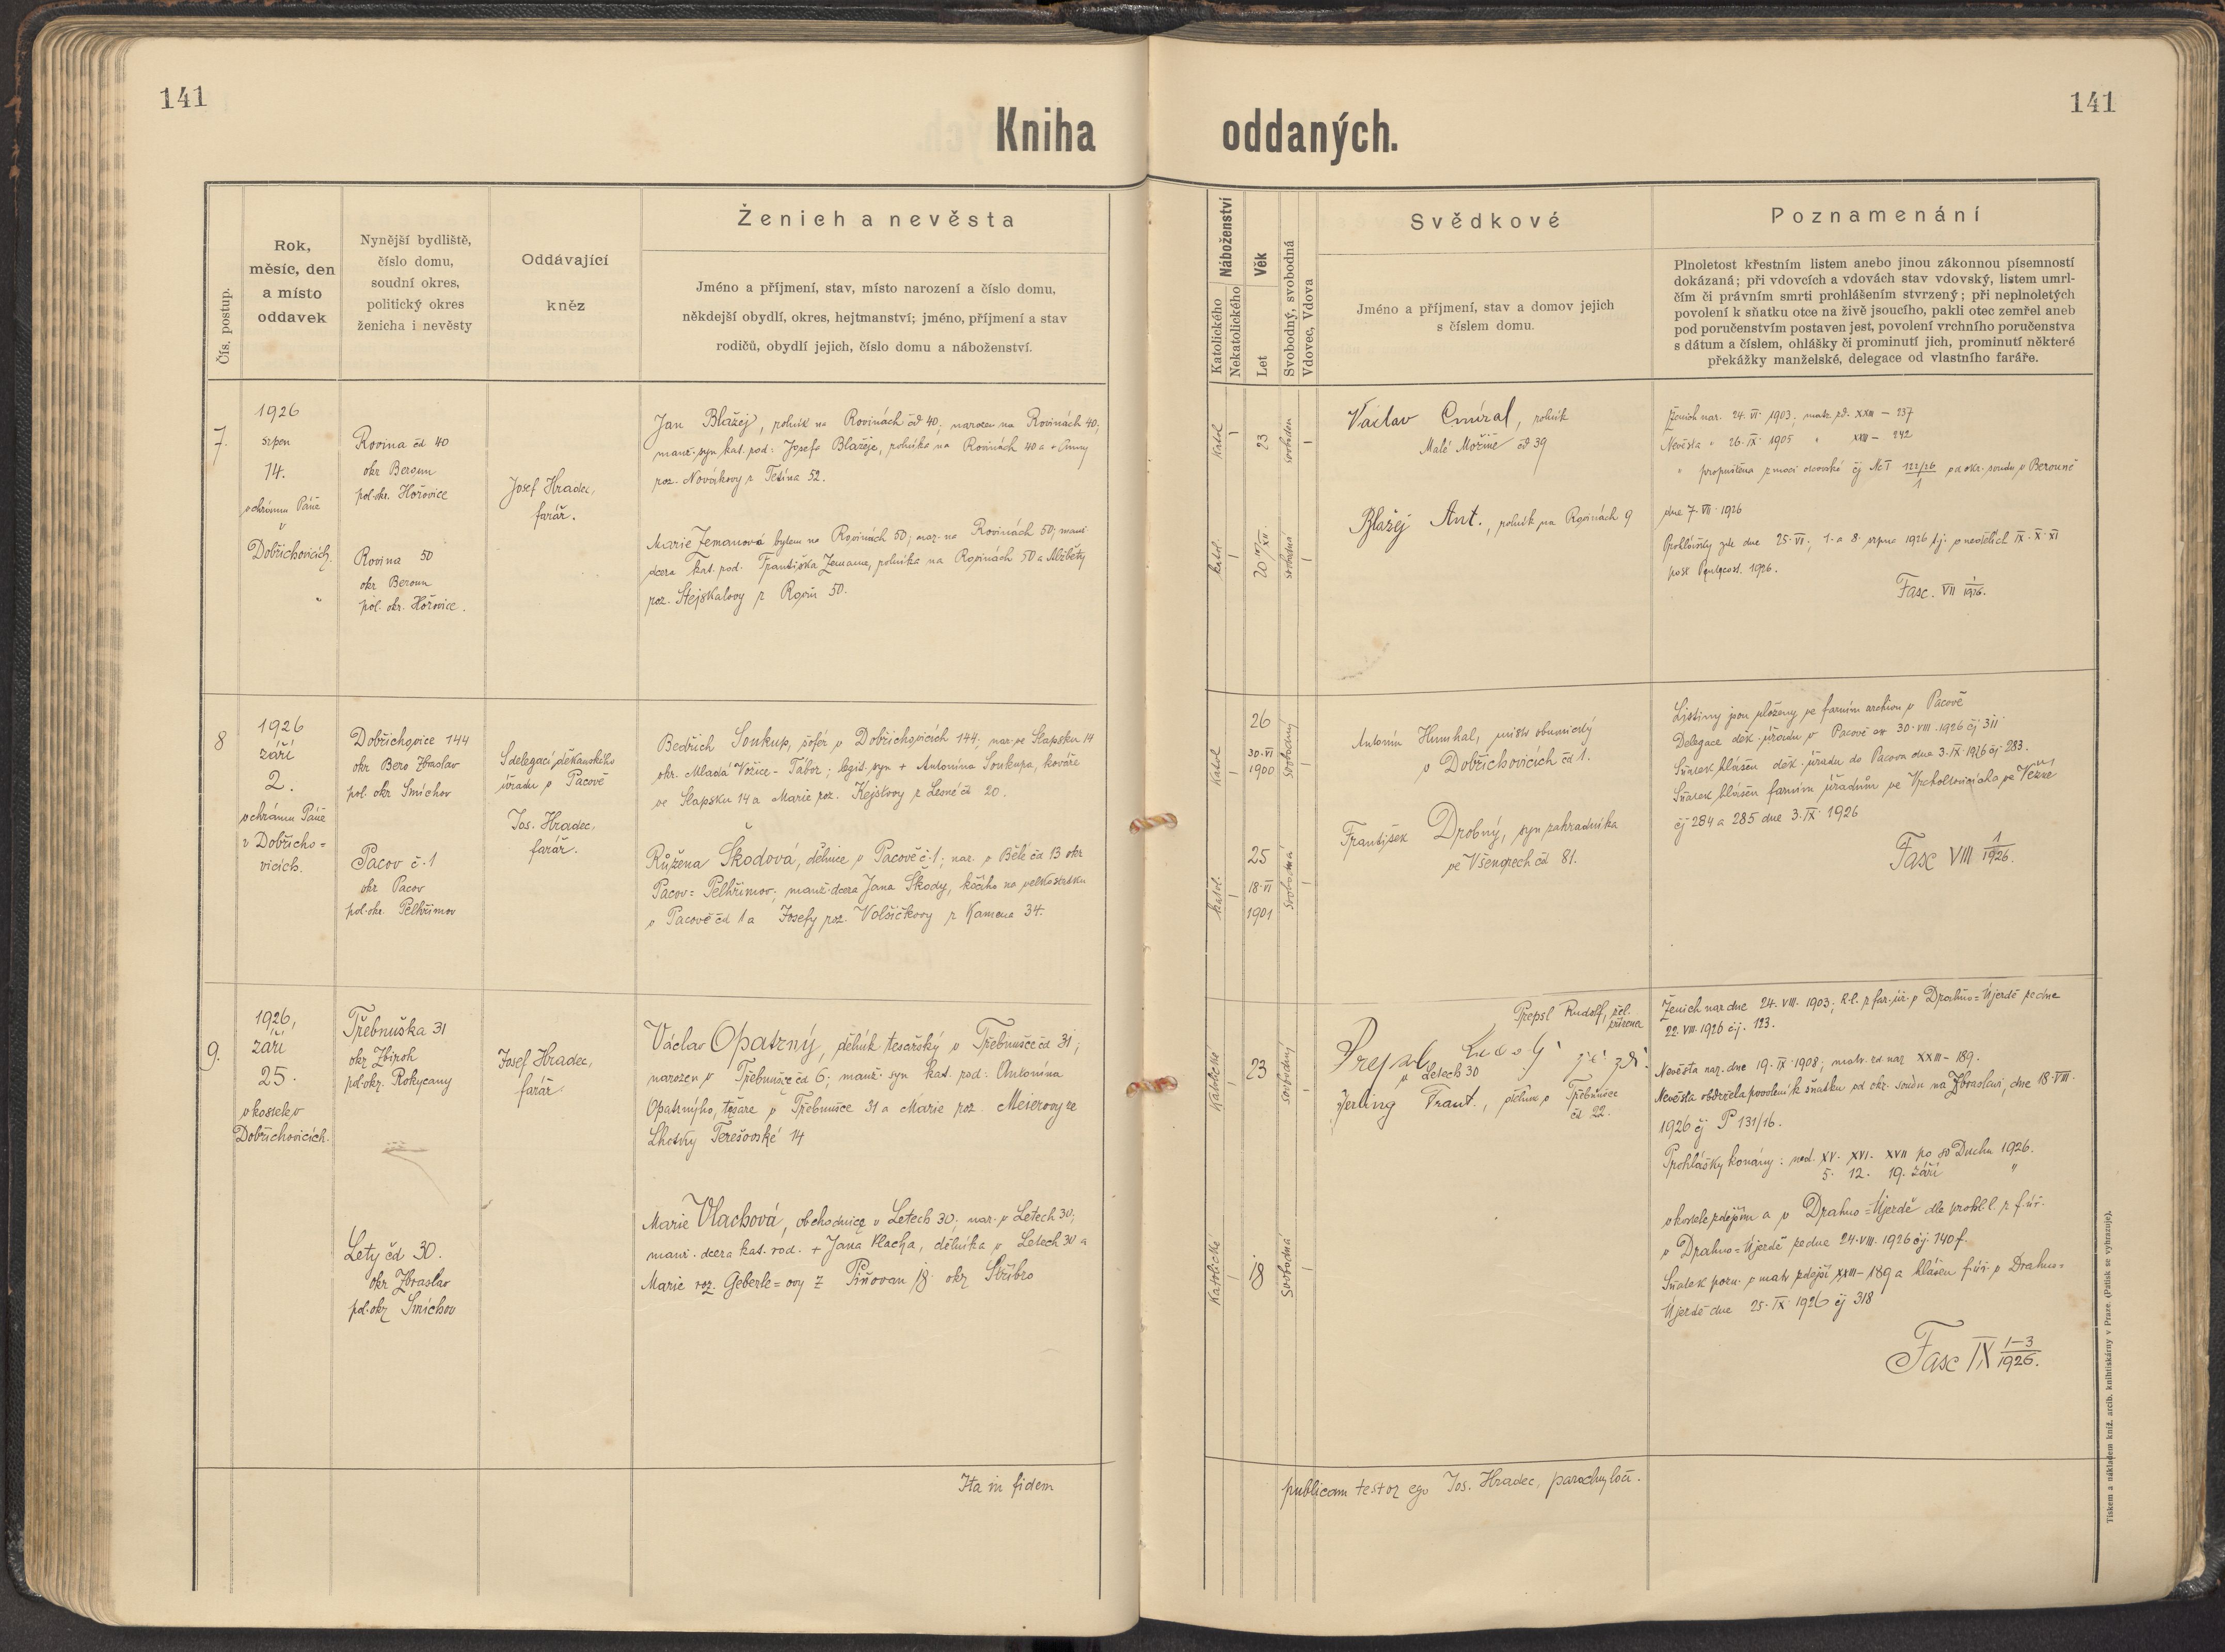 141
141
Kniha oddaných.
Čís. postup.
Rok,
měsíc, den
a místo
oddavek
Nynější bydliště,
číslo domu,
soudní okres,
politický okres
ženicha i nevěsty
Oddávající
kněz
Ženich a nevěsta
Jméno a příjmení, stav, místo narození a číslo domu,
někdejší obydlí, okres, hejtmanství; jméno, příjmení a stav
rodičů, obydlí jejich, číslo domu a náboženství.
Náboženství
Katolického
Nekatolického
Věk
Let
Svobodný, svobodná
Vdovec, Vdova
Svědkové
Jméno a příjmení, stav a domov jejich
s číslem domu.
Poznamenání
Plnoletost křestním listem anebo jinou zákonnou písemností
dokázaná; při vdovcích a vdovách stav vdovský, listem umrl-
čím či právním smrti prohlášením stvrzený; při neplnoletých
povolení k sňatku otce na živě jsoucího, pakli otec zemřel aneb
pod poručenstvím postaven jest, povolení vrchního poručenstva
s dátum a číslem, ohlášky či prominutí jich, prominutí některé
překážky manželské, delegace od vlastního faráře.
7.
1926
srpen
14.
v chrámu Páně
v
Dobřichovicích.
Rovina čd 40
okr Beroun
pol. okr. Hořovice
Rovina 50
okr Beroun
pol. okr. Hořovice.
Josef Hradec,
farář.
Jan Blažej, rolník na Rovinách čd 40; narozen na Rovinách 40;
manž. syn kat. rod: Josefa Blažeje, rolníka na Rovinách 40 a + Anny
roz. Novákovy z Tetína 52.
Marie Zemanová bytem na Rovinách 50; nar. na Rovinách 50; manž
dcera kat. rod. Františka Zemana, rolníka na Rovinách 50 a Alžběty
roz. Stejskalovy z Rovin 50.
Katol
23
svoboden
katol.
20
svobodná
Václav Cmíral, rolník
Malé Mořině čd 39
Blažej Ant., rolník na Rovinách 9
Ženich nar. 24. VI. 1903; matr. zd. XXIII — 237
Nevěsta " 26. IX. 1905 " XXIII — 242
" propuštěna z moci otcovské čj Nc I 122/26 od okr. soudu v Berouně
1
dne 7. VII. 1926
Prohlášky zde dne 25. VII., 1. a 8. srpna 1926 tj. v nedělích IX. X. XI
post Pentecost. 1926.
Fasc. VII 1/1926.
8
1926
září
2.
v chrámu Páně
v Dobřicho=
vicích.
Dobřichovice 144
okr Bero Zbraslav
pol. okr Smíchov
Pacov č. 1
okr Pacov
pol. okr. Pelhřimov
S delegací děkanského
úřadu v Pacově
Jos. Hradec,
farář.
Bedřich Soukup, šofér v Dobřichovicích 144; nar. ve Slapsku 14
okr. Mladá Vožice - Tábor; legit. syn + Antonína Soukupa, kováře
ve Slapsku 14 a Marie roz. Kejslovy z Lesné čd 20.
Růžena Škodová, dělnice v Pacově č. 1; nar. v Bělé čd 13 okr
Pacov = Pelhřimov; manž. dcera Jana Škody, kočího na velkostatku
v Pacově čd 1 a Josefy roz. Volšičkovy z Kamena 34.
Katol
26
30. VI
1900
svobodný
katol.
25
18. VI
1901
svobodná
Antonín Humhal, mistr obuvnický
v Dobřichovicích čd 1.
František Drobný, syn zahradníka
ve Všenorech čd 81.
Listiny jsou uloženy ve farním archivu v Pacově
Delegace děk. úřadu v Pacově 30. VIII. 1926 čj 311
Sňatek hlášen děk. úřadu do Pacova dne 3. IX. 1926 čj 283.
Sňatek hlášen farním úřadům ve Vrcholtovicích a ve Věžné
čj 284 a 285 dne 3. IX. 1926
Fasc VIII 1/1926.
9.
1926,
září
25.
v kostele v
Dobřichovicích.
Třebnuška 31
okr Zbiroh
pol. okr. Rokycany
Lety čd 30.
okr Zbraslav
pol. okr Smíchov
Josef Hradec,
farář
Václav Opatrný, dělník tesařský v Třebnušce čd 31;
narozen v Třebnušce čd 6; manž. syn kat. rod: Antonína
Opatrnýho, tesaře v Třebnušce 31 a Marie roz. Meierovy ze
Lhotky Terešovské 14
Marie Vlachová, obchodnice v Letech 30; nar. v Letech 30;
manž. dcera kat. rod. + Jana Vlacha, dělníka v Letech 30 a
Marie roz. Geberle=ovy z Piňovan 18 okr Stříbro
Katolické
23
svobodný
Katolické
18
Svobodná
Přepsl Rudolf, žel.
zřízenec
v Letech 30
Jerling Frant., dělník v Třebnušce
čd 22.
Ženich nar dne 24. VIII. 1903; k. l. z far. úř. v Drahno=Újezdě ze dne
22. VIII. 1926 čj. 123.
Nevěsta nar. dne 19. IX 1908; matr. zd nar XXIII — 189.
Nevěsta obdržela povolení k sňatku od okr. soudu na Zbraslavi, dne 18. VIII.
1926 čj P 131/16.
Prohlášky konány: ned. XV. XVI. XVII po sv Duchu 1926.
5. 12. 19. září "
v kostele zdejším a v Drahno=Újezdě dle prohl. l. z f. úř.
v Drahno=Újezdě ze dne 24. VIII. 1926 čj. 140 f.
Sňatek pozn. v matr zdejší XXIII — 189 a hlášen f. úř. v Drahno=
Újezdě dne 25. IX. 1926 čj 318
Fasc IX 1—3/1926.
Ita in fidem publicam testor ego Jos. Hradec, parochus loci.
Tiskem a nákladem kníž. arcib. knihtiskárny v Praze. (Patisk se vyhrazuje).